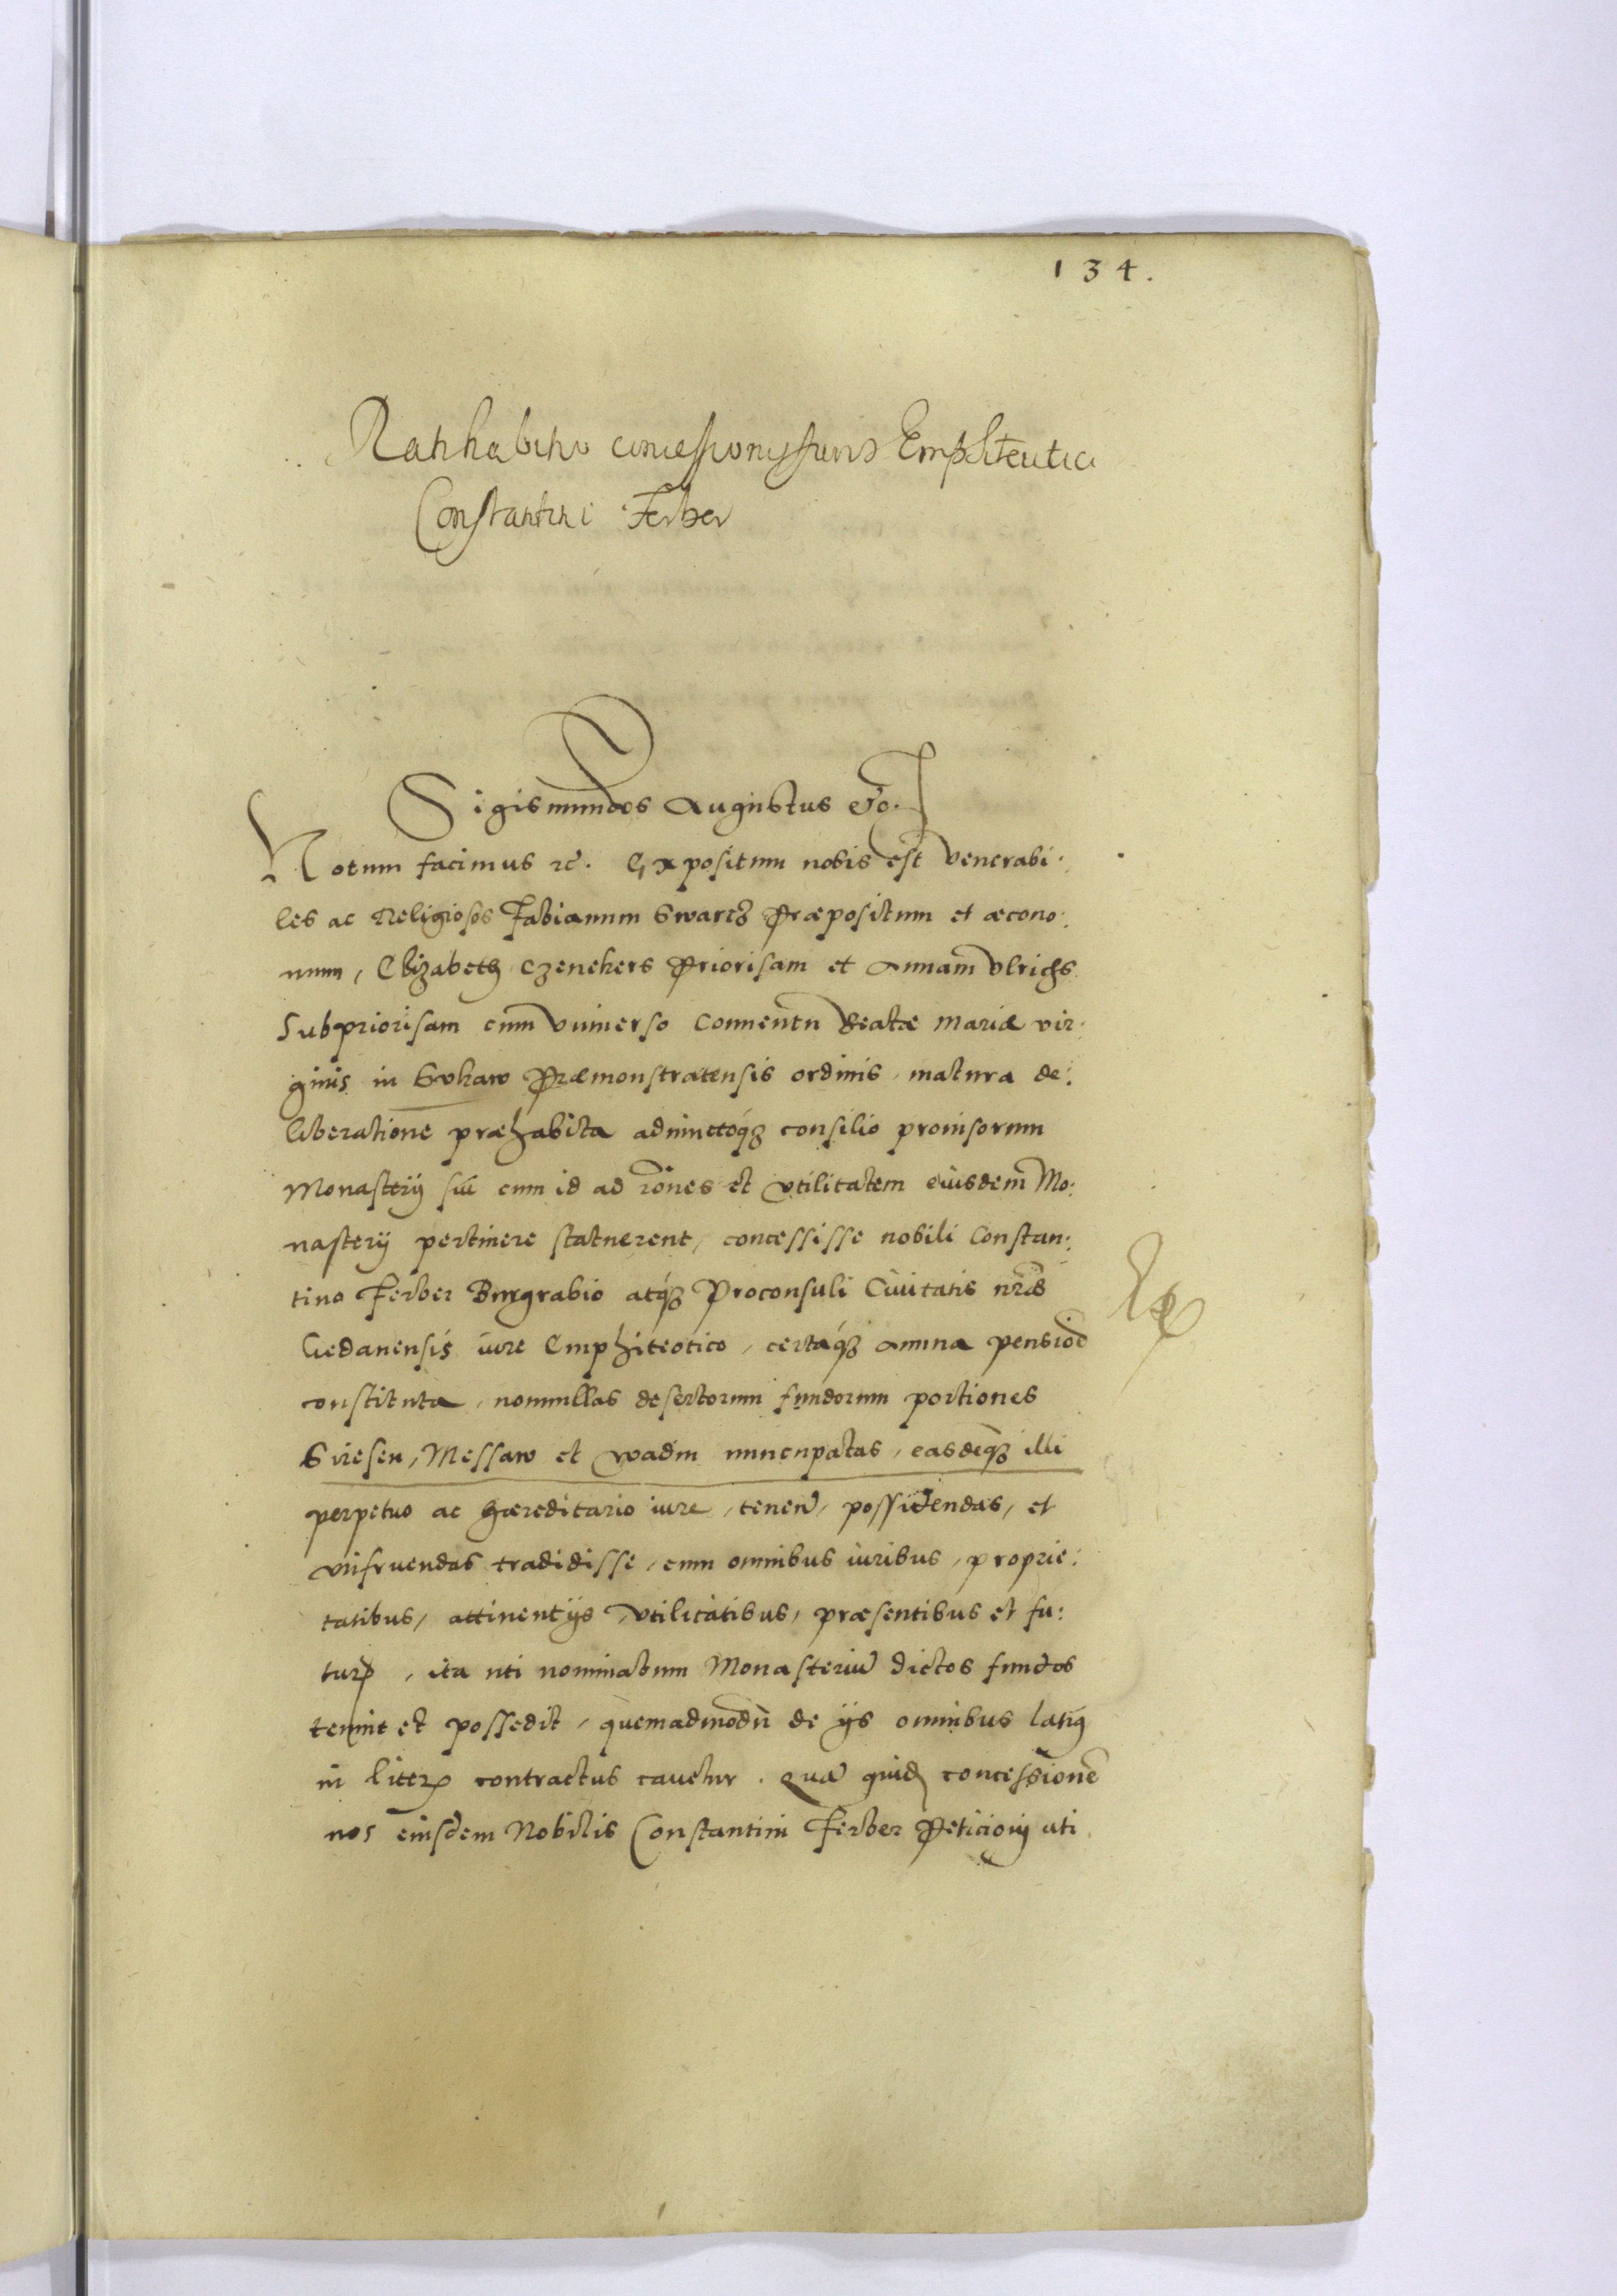 134.
Ratihabitio concessionis Juris Emphiteutici
Constantini Ferber
Sigismundus Augustus etc.
Notum facimus etc. Expositum nobis est Venerabi:
les ac Religiosos Fabianum Swartz Præpositum et æcono:
mum, Elizabeth Czenekers Priorisam et Annam Vlrichs
Subpriorisam cum Vniuerso Conuentu Beatæ Mariæ vir:
ginis in Sukaw Præmonstratensis ordinis, matura de:
liberatione præhabita adiunctoq́ꝫ consilio prouisorum
Monasterij sui cum id ad rōnes et vtilitatem eiusdem Mo:
nasterij pertinere statuerent, concessisse nobili Constan:
tino Ferber Burgrabio atq́ꝫ Proconsuli Ciuitatis nr̄æ
Gedanensis iure Emphiteotico, certaq́ꝫ annua pensiōe
constituta, nonnullas desertorum fundorum portiones
Siresen, Messaw et wadin nuncupatas, easdēqꝫ illi
perpetuo ac hæreditario iure, tenend̄, possidendas, et
vtifruendas tradidisse, cum omnibus iuribus, proprie:
tatibus, attinentijs, vtilitatibus, præsentibus et fu:
turꝭ, ita uti nominatum Monasteriū dictos fundos
tenuit et possedit, quemadmodū de ijs omnibus latiꝰ
in literꝭ contractus cauetur. Quā quidē concessionē
nos eiusdem Nobilis Constantini Ferber Peticioni uti